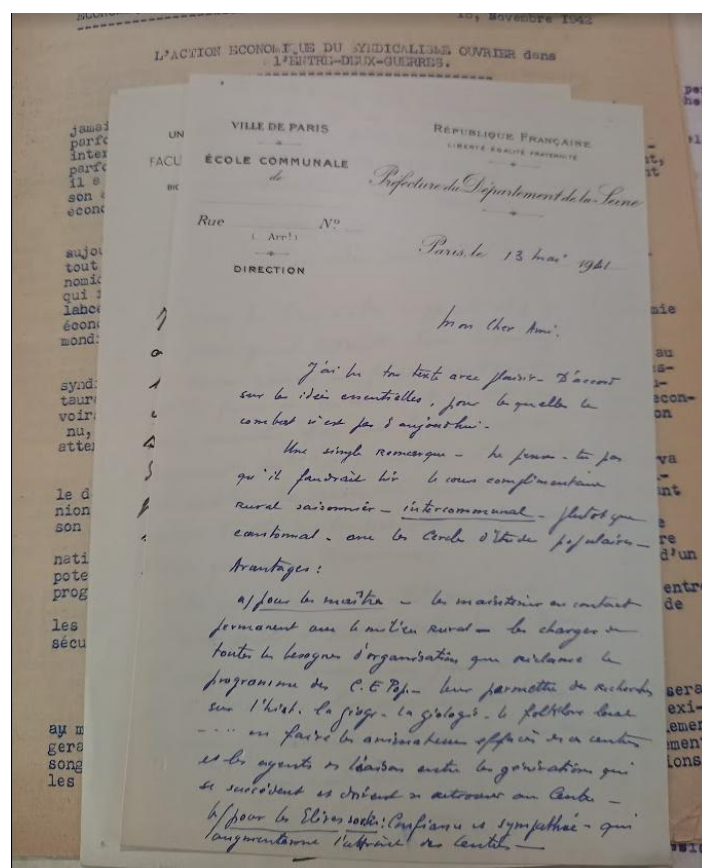 18, Novembre 1942
L'ACTION ECONOMIQUE DU SYNDICALISME OUVRIER dans
l'ENTRE-DEUX-GUERRES.
VILLE DE PARIS
ÉCOLE COMMUNALE
de
Rue Nº
( Arrt)
DIRECTION
RÉPUBLIQUE FRANÇAISE
LIBERTÉ ÉGALITÉ FRATERNITÉ
Préfecture du Département de la Seine
Paris, le 13 mai 1941
Mon Cher Ami.
J'ai lu ton texte avec plaisir - D'accord
sur les idées essentielles, pour lesquelles le
combat n'est pas d'aujourd'hui -
Une simple remarque - Ne penses-tu pas
qu'il faudrait lier le cours complémentaire
rural saisonnier - intercommunal - plutôt que
cantonal - avec les Cercle d'Etude populaires -
Avantages :
a/ pour les maîtres - les maintenir en contact
permanent avec le milieu rural - les charger de
toutes les besognes d'organisation que réclame le
programme des C.E Pop - leur permettre des recherches
sur l'hist. la géogr - la géologie - le folklore local
---- en faire les animateurs efficaces de ces centres
et les agents de liaison entre les générations qui
se succèdent et doivent se retrouver au Centre -
b/ pour les Elèves : Confiance et sympathie - qui
augmentent l'attrait des Centres -
UN
FACU
jamai
parfo
inter
parfo
il a
son
écono
aujou
tout
nomiq
qui
labo
écono
mondi
syndi
taure
voir
nu,
atte
le d
nion
son
nati
pote
prog
les
sécu
au m
gera
song
les
mie
au
econ-
on
va
ant
re
d'un
entre
de
sera
exi-
ement
ions